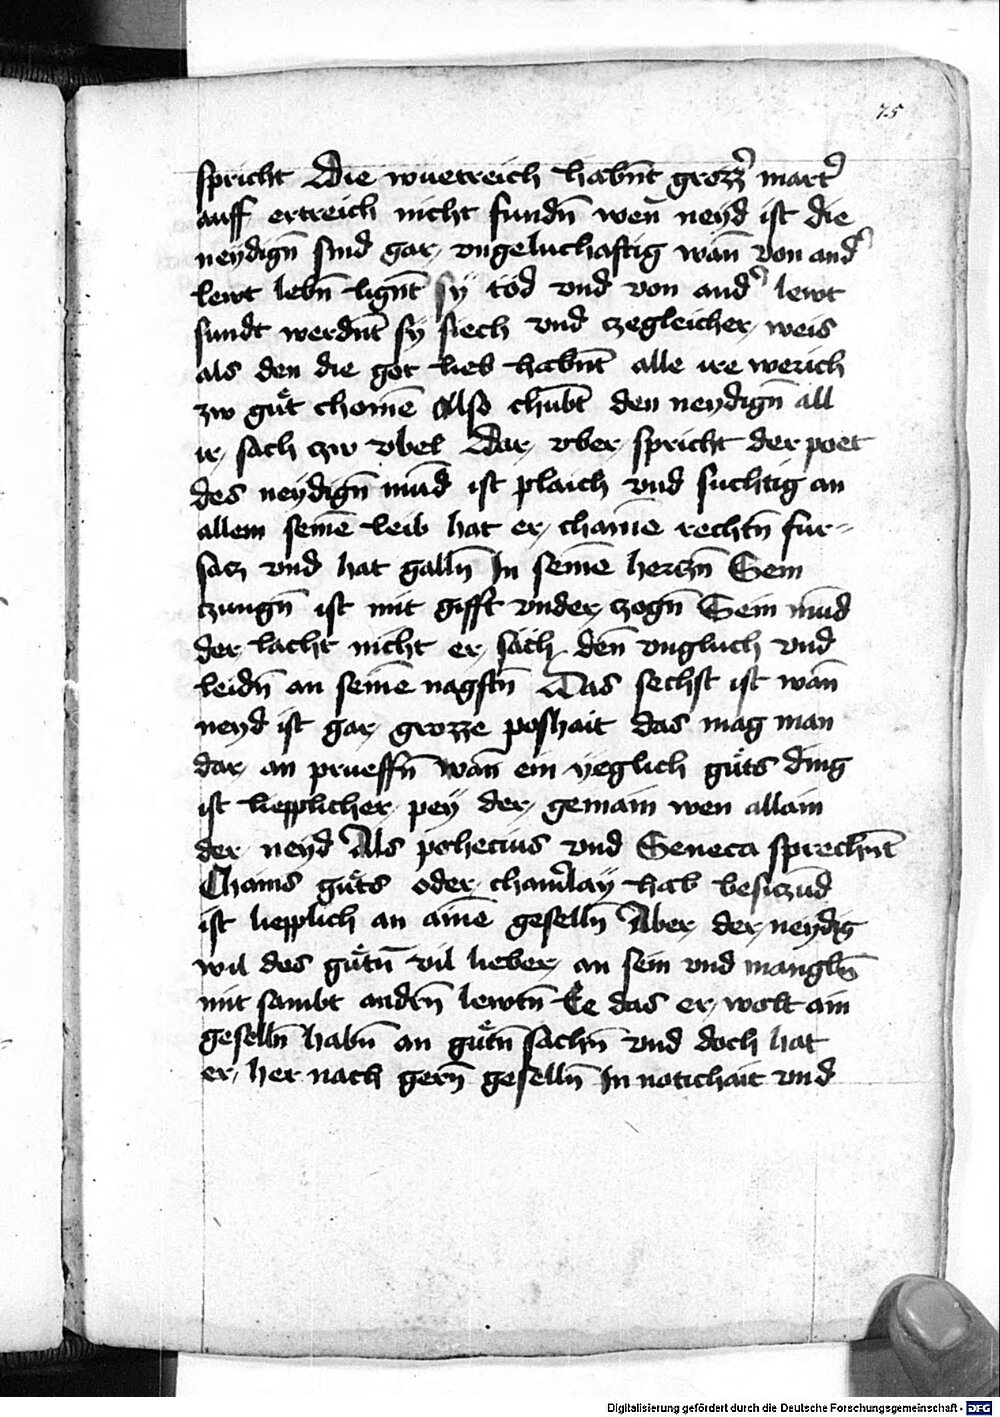 75
spricht Die wuetreich habnt grozz̄ mart̄
auff ertreich nicht fundn̄ wen̄ neyd ist die
neydign̄ sind gar ungeluchaftig wan̄ von and̄
lewt lebn̄ lignt sy töd vnd von and̄ lewt
sundt werdnt sy siech vnd czegleicher weis
als den die got lieb habnt alle ire werich
zw gůt chomē Also chūbt den neydign̄ all
ir sach czw vbel Dar vber spricht der poet
des neydign̄ mūd ist plaich vnd suchtig an
allem seinē leib hat er chainē rechtn̄ fur-
sacz vnd hat galln̄ In seinē herczn̄ Sein
czungn̄ ist mit gifft vnder zogn̄ Sein mūd
der lacht nicht er säch den̄ vngluch vnd
leidn̄ an seinē nagstn̄ Das sechst ist wan̄
neyd ist gar grozze poshait das mag man
dar an prueffn̄ wan̄ ein yeglich gůts ding
ist liepplicher pey der gemain wen allain
der neyd Als pohecius vnd Seneca sprechn̄t
Chains gůts oder chamerlay hab besiczūd
ist liepplich an ainē geselln̄ Aber der neydig
wil des gůtn̄ vil lieber an sein vnd mangln̄
mit sambt andrn̄ lewtn̄ Ee das er wolt ain
geselln̄ habn̄ an gůtn̄ sachn̄ vnd doch hat
er her nach gern̄ geselln̄ In notichait vnd
Digitalisierung gefördert durch die Deutsche Forschungsgemeinschaft - DFG